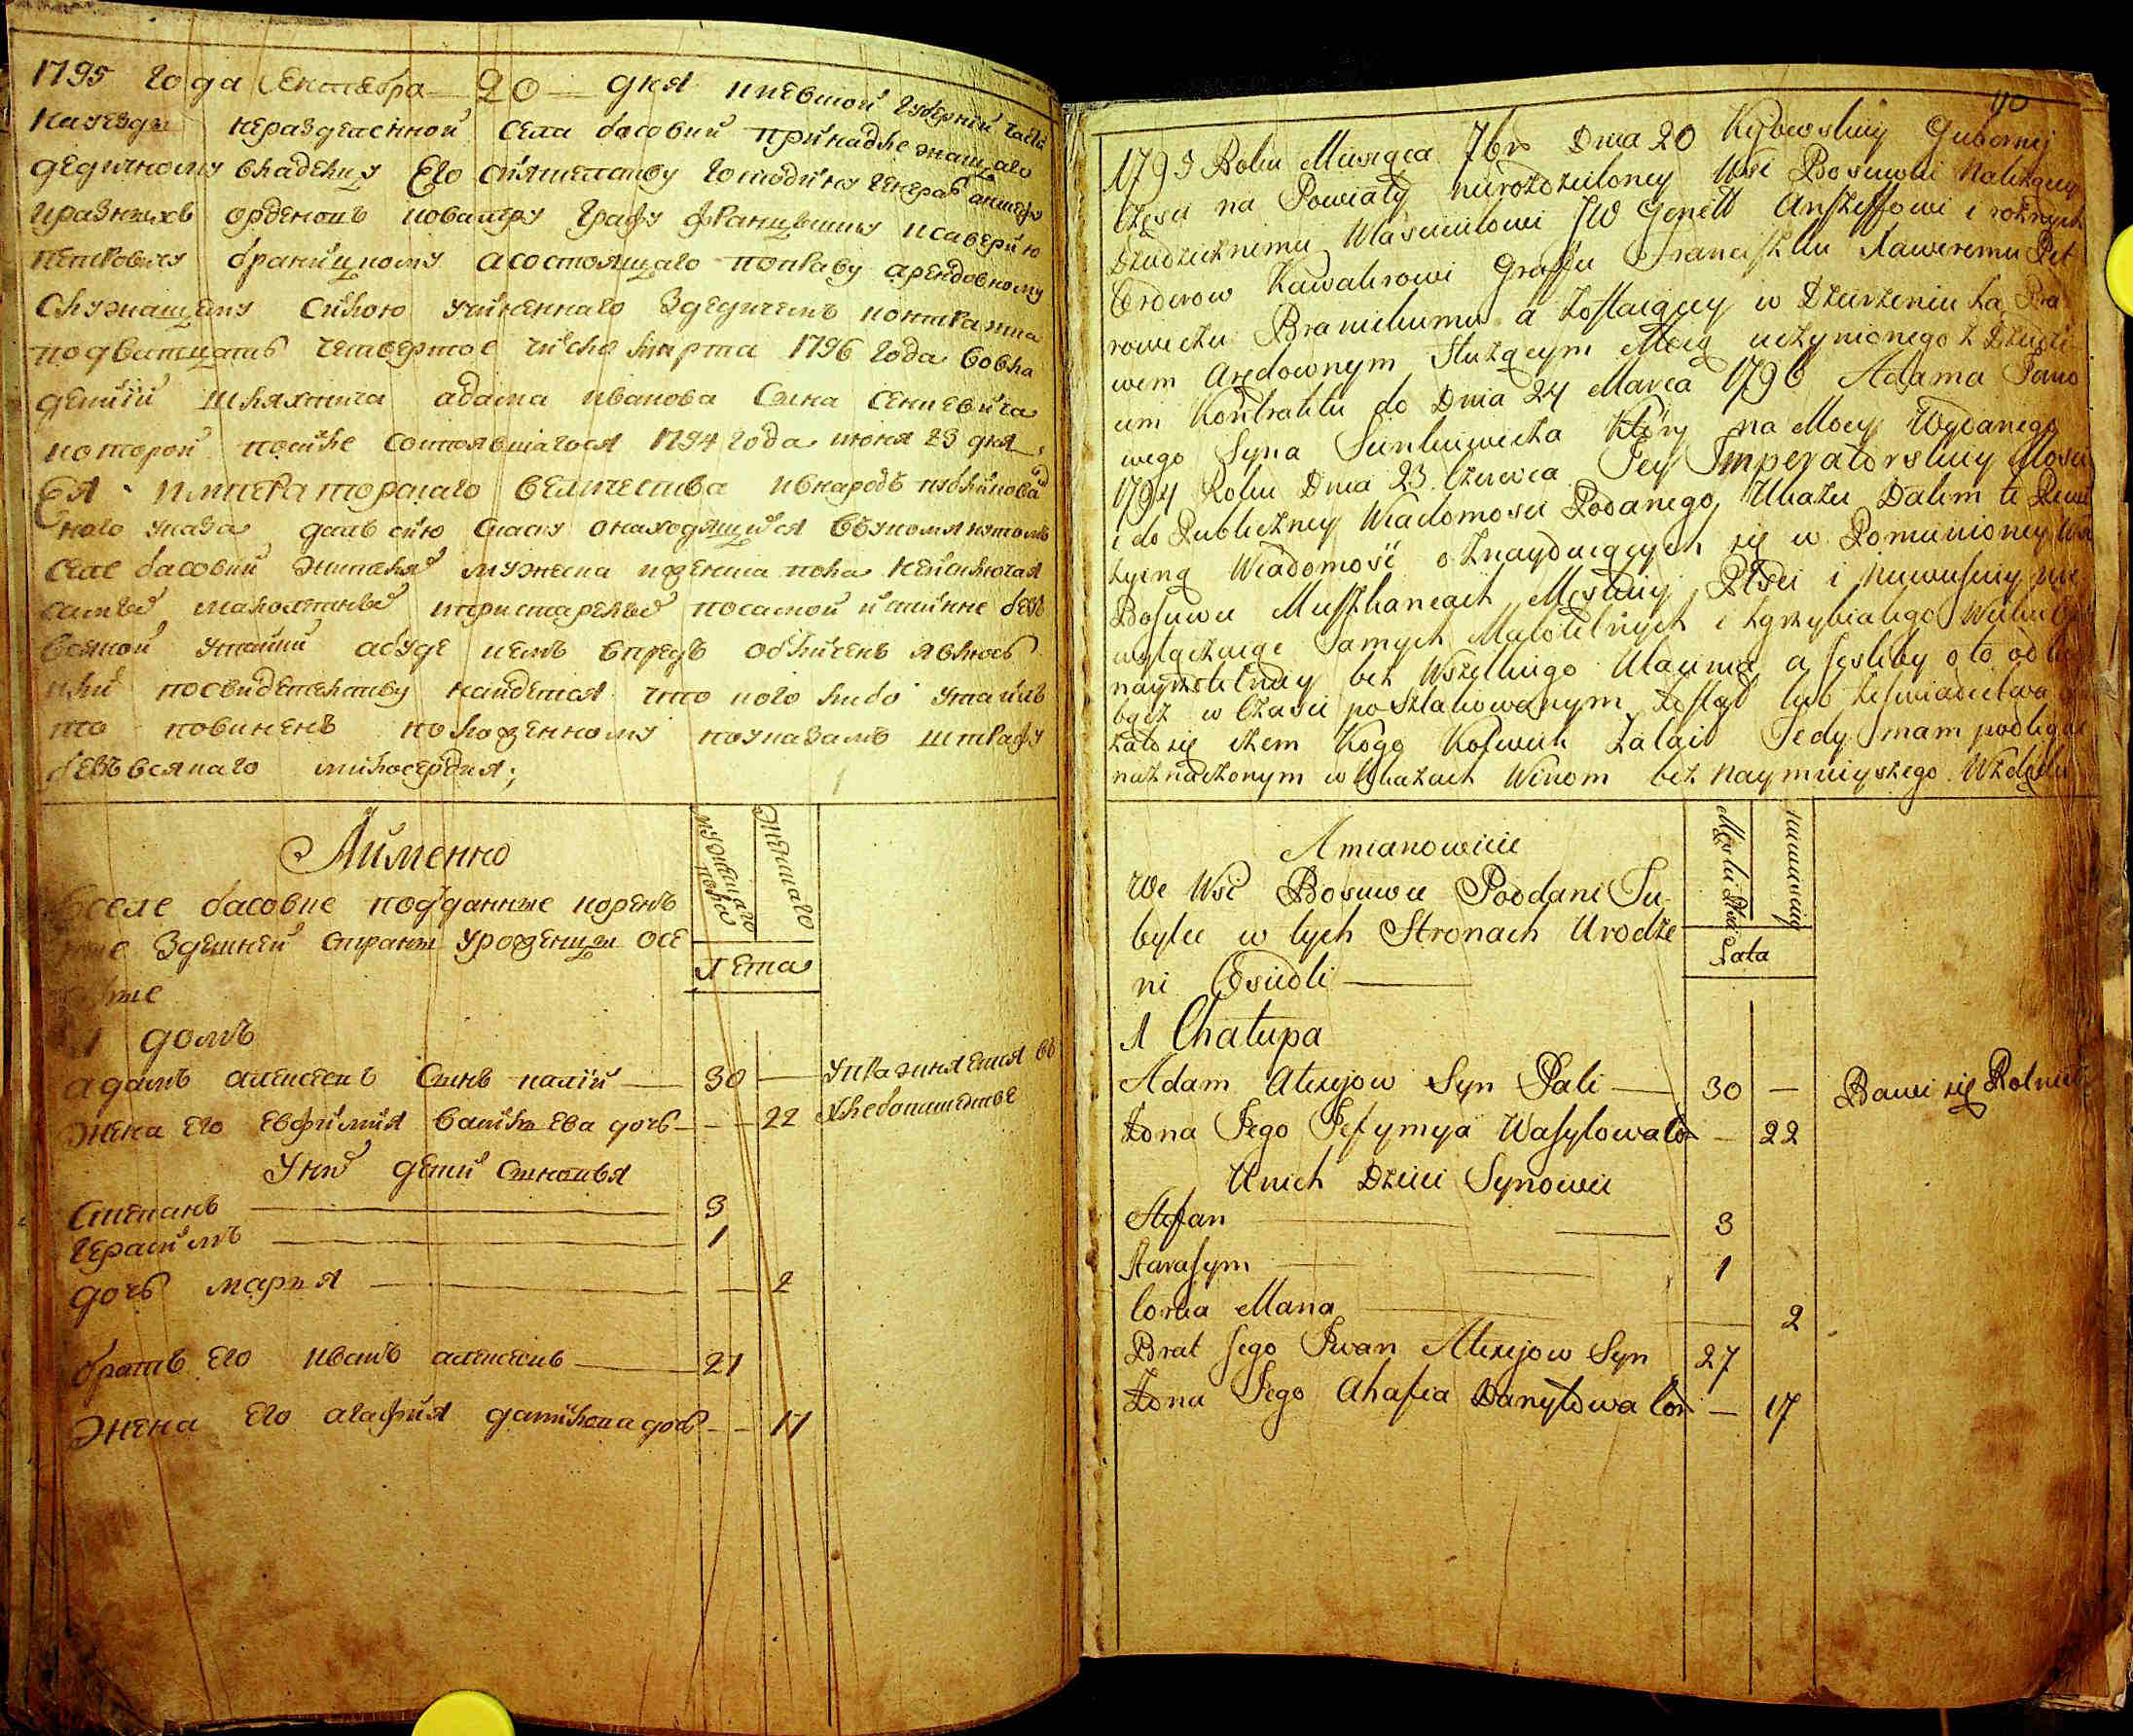 1795 года Сентебра 20 дня киевской губерний части
науезды неразделенной села басовки принадлежащаго
дедичному владельцу Его сиятельству господину генералъ аншефу
и разныхъ орденовъ кавалеру графу францышку ксаверию
петровичу браницкому а состоящаго поправу арендовному
служащему силою учиненнаго здедичемъ контракта
подватцать четвертое число марта 1796 года вовла
дении шляхтича адама иванова сына
которой после состоявшагося 1794 года июня 23 дня
Ея Императорскаго величества ивнародъ публикова
наго указа далъ сию скаску онаходящихся вупомянутомъ
селе басовки жителях мужеска иженска пола неисключая
самых малолетных и престарелых посамой истинне безъ
всякой утайки абуде кемъ впредь обличенъ явлюсь
или посвидетельству найдется что кого либо утаилъ
то повиненъ положенному поуказамъ штрафу
безъ всякаго милосердия;
Аименно
мужескаго пола
женскаго
вселе басовке подданные корен
ные здешней страны уроженцы осе
лые
Лета
1 домъ
адамъ алексеевъ сынъ палий — 30 — упражняется въ
жена его евфимия васильева дочь - - 22 хлебопашестве
У них дети сыновья
степанъ — 3
герасимъ — 1
дочь мария — 2
братъ его иванъ алексеевъ — 27
жена его агафия данилова дочь - - 17
110
1795 Roku Miesiąca 7br Dnia 20 Kijowskiey Gubernij
Części na Powiaty nierozdzieloney Wsi Bosuwki Należącey
Dziedzicznemu Włascicielowi JW Genełł Anszeffowi i roznych
Orderow Kawalerowi Graffu Franciszku Xaweremu Piet
rowiczu Branickiemu a zostaiącey w Dzierżeniu za Pra
wem Arędownym Służącym Mocą uczynionego z Dziedzi
cem Kontraktu do Dnia 24 Marca 1796 Adama Jano
wego Syna Sienkiewicza Który na Mocy Wydanego
1794 Roku Dnia 23 Czerwca Jey Imperatorskiey Mosci
i do Publiczney Wiadomosci Podanego Ukazu Dałem tę Rewi
zyiną Wiadomość o Znayduiących się w Pomienioney Wsi
Bosuwce Mieszkancach Męskiey Płci i Niewiesciey nie
wyłączaiąc Samych Małoletnych i zgrzybiałego Wieku
nayrzetelniey bez Wszelkiego Utaienia a Jesliby o to od kogo
bądź w Czasie poszlakowanym Został lub zeswiadectwa
załosię żem Kogo Kolwiek Zataił Tedy mam podlegać
naznaczonym w Ukazach Winom bez naymnieyszego Względu
Amianowicie
Męskiey Płci
niewiesciey
We Wsi Bosuwce Poddani Tu
bylce w tych Stronach Urodze
ni Osiedli —
Lata
1 Chałupa
Adam Alexejow Syn Pali — 30 — Bawi się Rolnic
Żona Jego Jefymya Wasylowa Cór — 22
U nich Dzieci Synowie
Stefan — 3
Harasym — 1
Corka Marya — 2
Brat Jego Iwan Alexejow Syn 27
Żona Jego Ahafia Danyłowa Cór — 17